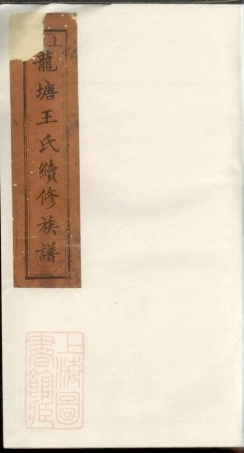 上
龍塘王氏續修族譜
上海圖書館藏